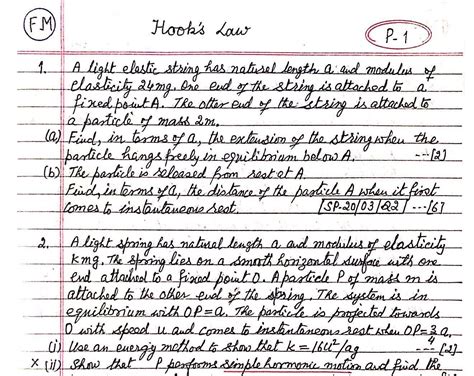 F.M
Hook's Law
P-1
1. A light elastic string has natural length a and modulus of
elasticity 24mg. One end of the string is attached to a
fixed point A. The other end of the string is attached to
a particle of mass 2m.
(a) Find, in terms of a, the extension of the string when the
particle hangs freely in equilibrium below A. ---[2]
(b) The particle is released from rest at A.
Find, in terms of a, the distance of the particle A when it first
comes to instantaneous rest. SP-20/03/Q2 ---[6]
2. A light spring has natural length a and modulus of elasticity
kmg. The spring lies on a smooth horizontal surface with one
end attached to a fixed point O. A particle P of mass m is
attached to the other end of the spring. The system is in
equilibrium with OP=a. The particle is projected towards
O with speed u and comes to instantaneous rest when OP=3/4 a.
(i) Use an energy method to show that k=16u²/ag ---[2]
x (ii) Show that P performs simple harmonic motion and find the